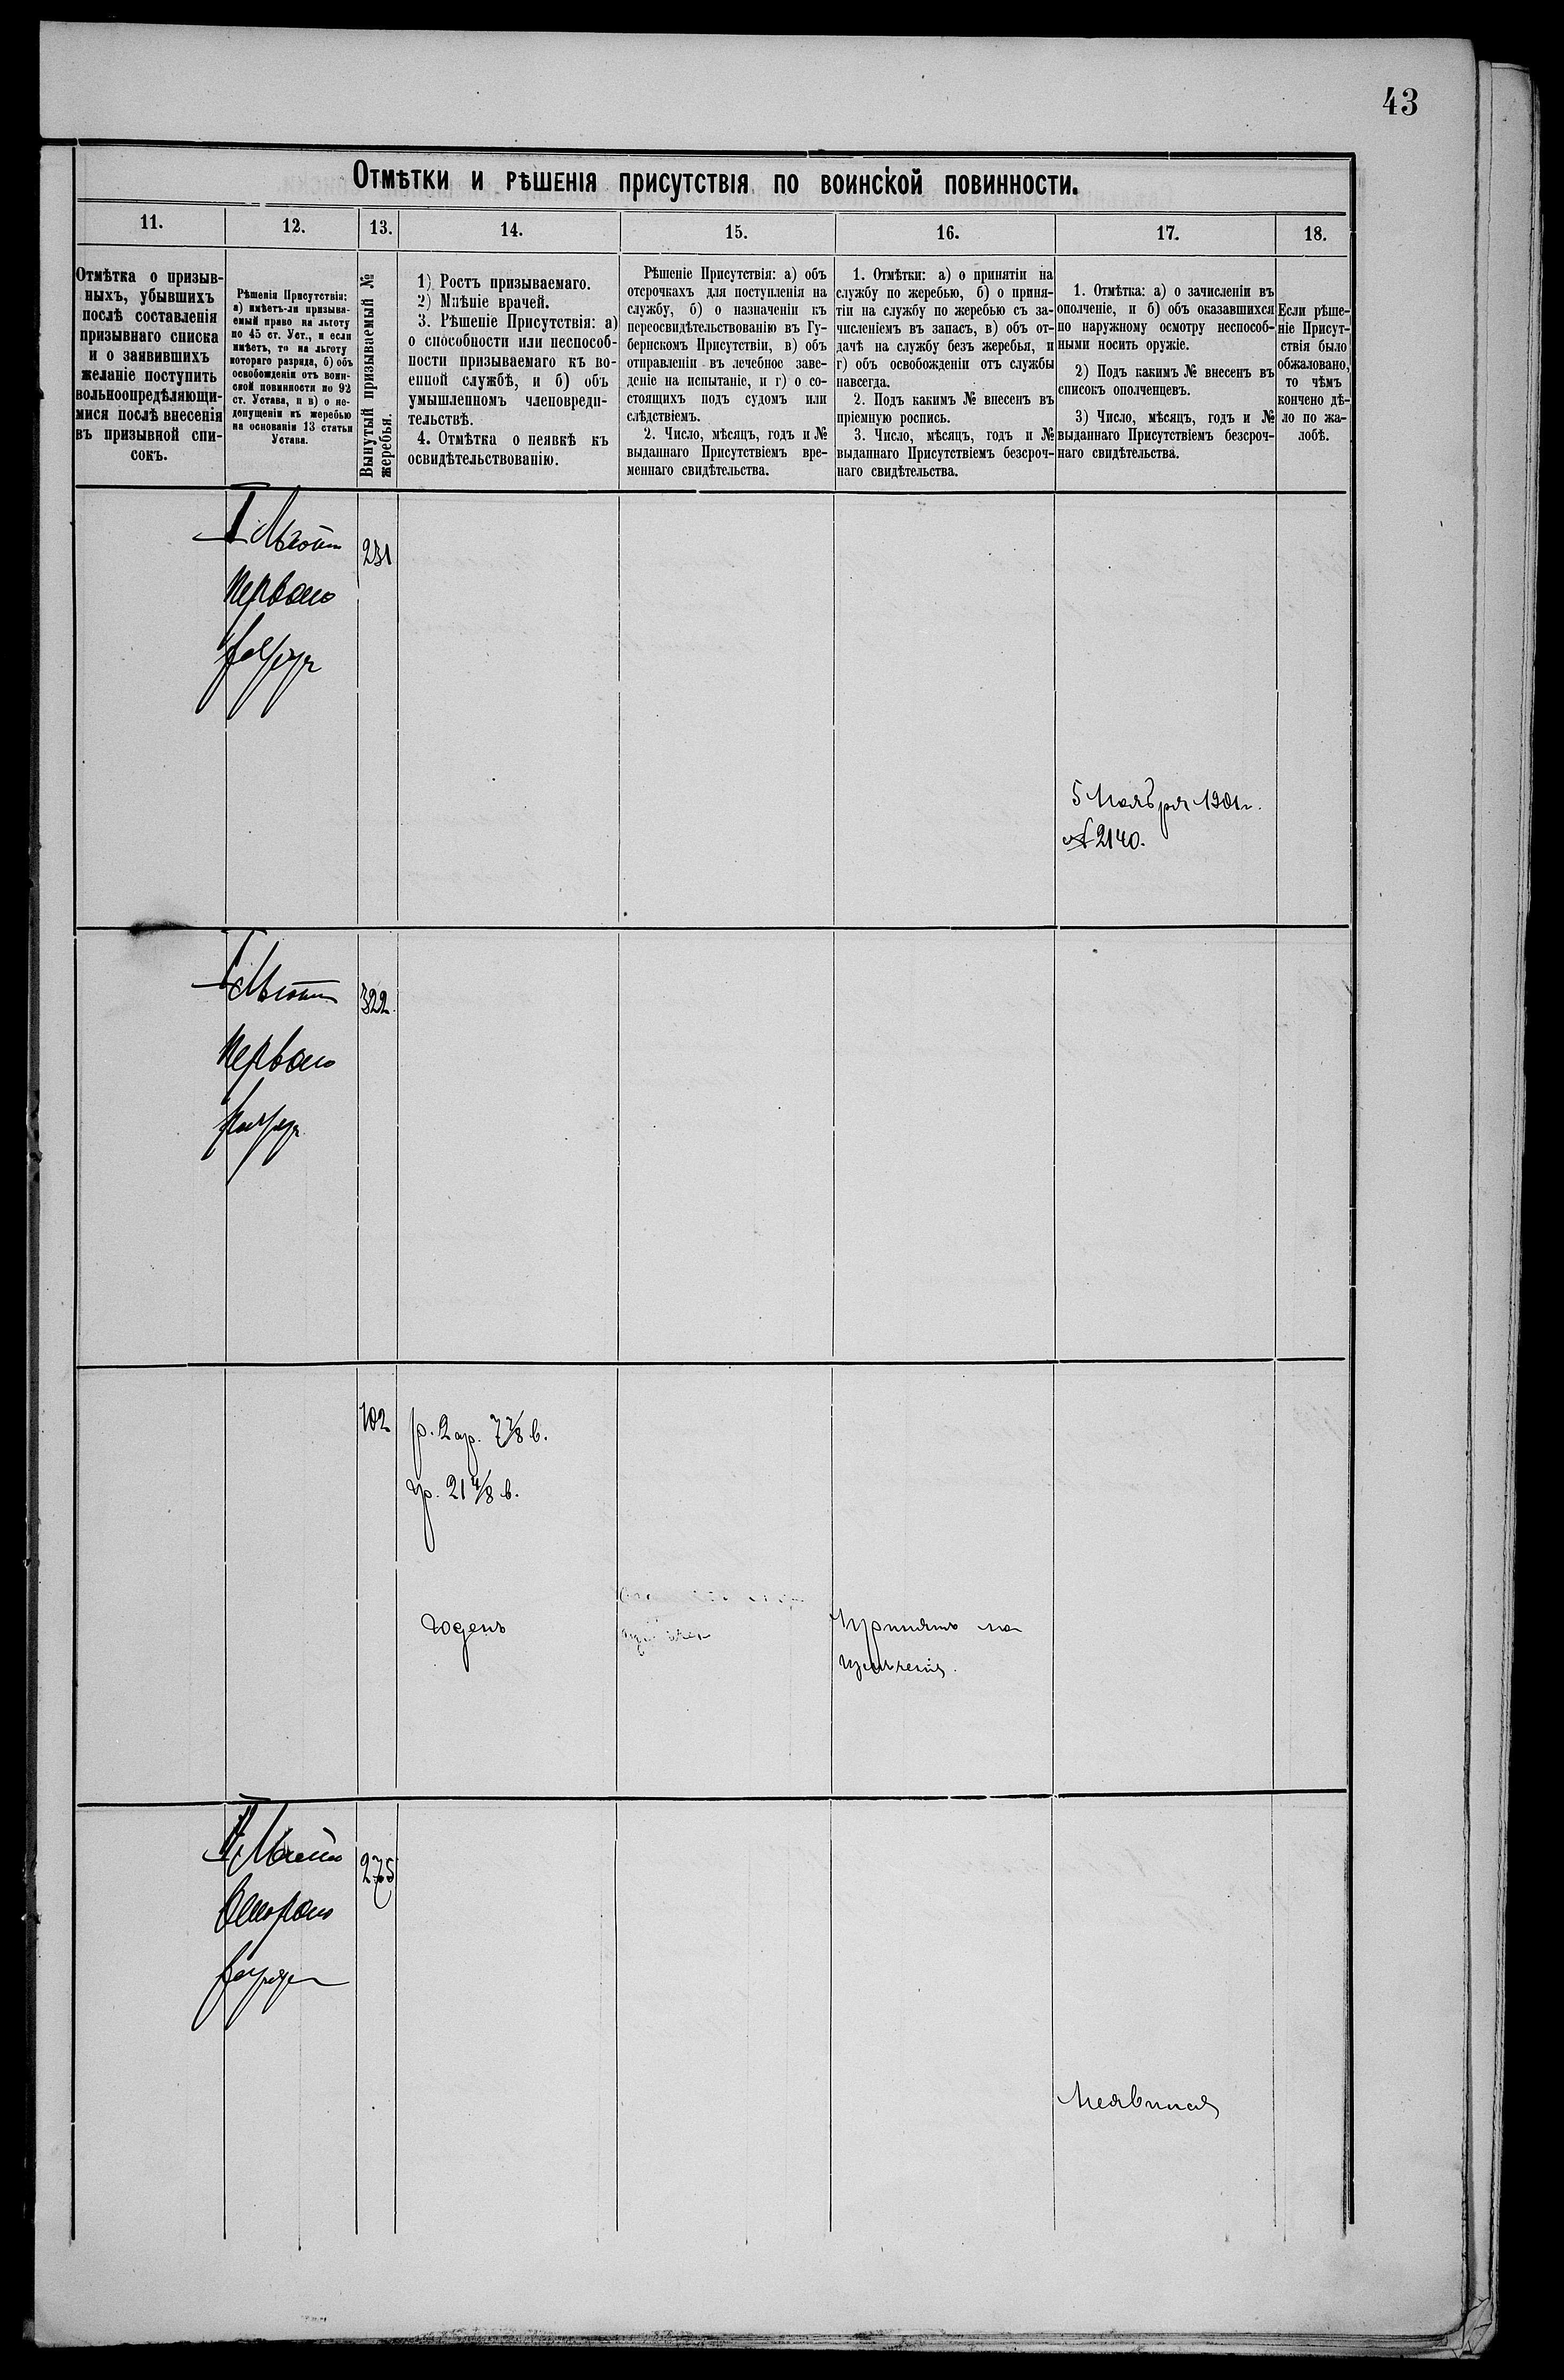 43
Отмѣтки и рѣшенія присутствія по воинской повинности.
11.
12.
13.
14.
15.
16.
17.
18.
Отмѣтка о призыв-
ныхъ, убывшихъ
послѣ составленія
призывнаго списка
и о заявившихъ
желаніе поступить
вольноопредѣляющи-
мися послѣ внесенія
въ призывной спи-
сокъ.
Рѣшенія Присутствія:
а) имѣетъ-ли призыва-
емый право на льготу
по 45 ст. Уст., и если
имѣетъ, то на льготу
котораго разряда, б) объ
освобожденіи отъ воин-
ской повинности по 92
ст. Устава, и в) о не-
допущеніи къ жеребью
на основаніи 13 статьи
Устава.
Вынутый призываемый №
жеребья.
1) Ростъ призываемаго.
2) Мнѣніе врачей.
3. Рѣшеніе Присутствія: а)
о способности или неспособ-
ности призываемаго къ во-
енной службѣ, и б) объ
умышленномъ членовреди-
тельствѣ.
4. Отмѣтка о неявкѣ къ
освидѣтельствованію.
Рѣшеніе Присутствія: а) объ
отсрочкахъ для поступленія на
службу, б) о назначеніи къ
переосвидѣтельствованію въ Гу-
бернскомъ Присутствіи, в) объ
отправленіи въ лечебное заве-
деніе на испытаніе, и г) о со-
стоящихъ подъ судомъ или
слѣдствіемъ.
2. Число, мѣсяцъ, годъ и №
выданнаго Присутствіемъ вре-
меннаго свидѣтельства.
1. Отмѣтки: а) о принятіи на
службу по жеребью, б) о приня-
тіи на службу по жеребью съ за-
численіемъ въ запасъ, в) объ от-
дачѣ на службу безъ жеребья, и
г) объ освобожденіи отъ службы
навсегда.
2. Подъ какимъ № внесенъ въ
пріемную роспись.
3. Число, мѣсяцъ, годъ и №
выданнаго Присутствіемъ безсроч-
наго свидѣтельства.
1. Отмѣтка: а) о зачисленіи въ
ополченіе, и б) объ оказавшихся
по наружному осмотру неспособ-
ными носить оружіе.
2) Подъ какимъ № внесенъ въ
списокъ ополченцевъ.
3) Число, мѣсяцъ, годъ и №
выданнаго Присутствіемъ безсроч-
наго свидѣтельства.
Если рѣше-
ніе Присут-
ствія было
обжаловано,
то чѣмъ
кончено дѣ-
ло по жа-
лобѣ.
I Льгота
231
перваго
разряда
5 Ноября 1901 г.
№ 2140.
I Льгота
322.
перваго
разряда
102
р. 2 ар. 7 7/8 в.
гр. 21 4/8 в.
годенъ
Принятъ на
II Льгота
275
Второго
разряда
Неявился